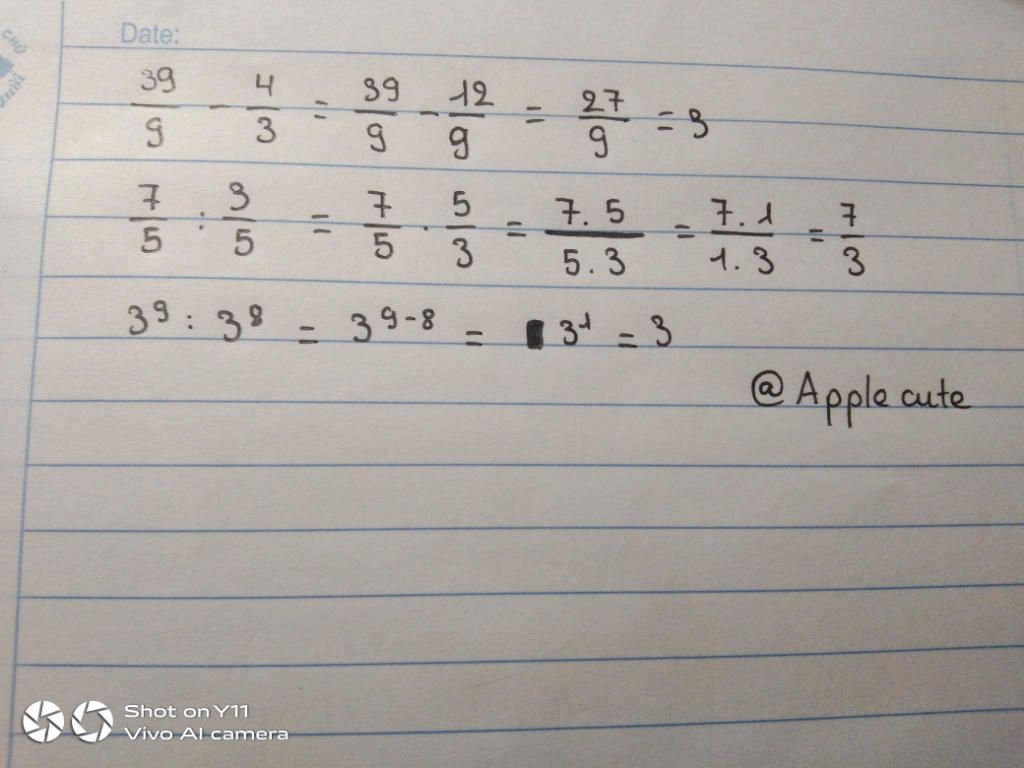 CHỮ
Date:
39/9 - 4/3 = 39/9 - 12/9 = 27/9 = 3
7/5 : 3/5 = 7/5 . 5/3 = 7.5/5.3 = 7.1/1.3 = 7/3
3⁹ : 3⁸ = 3⁹⁻⁸ = 3¹ = 3
@ Apple cute
Shot on Y11
Vivo AI camera